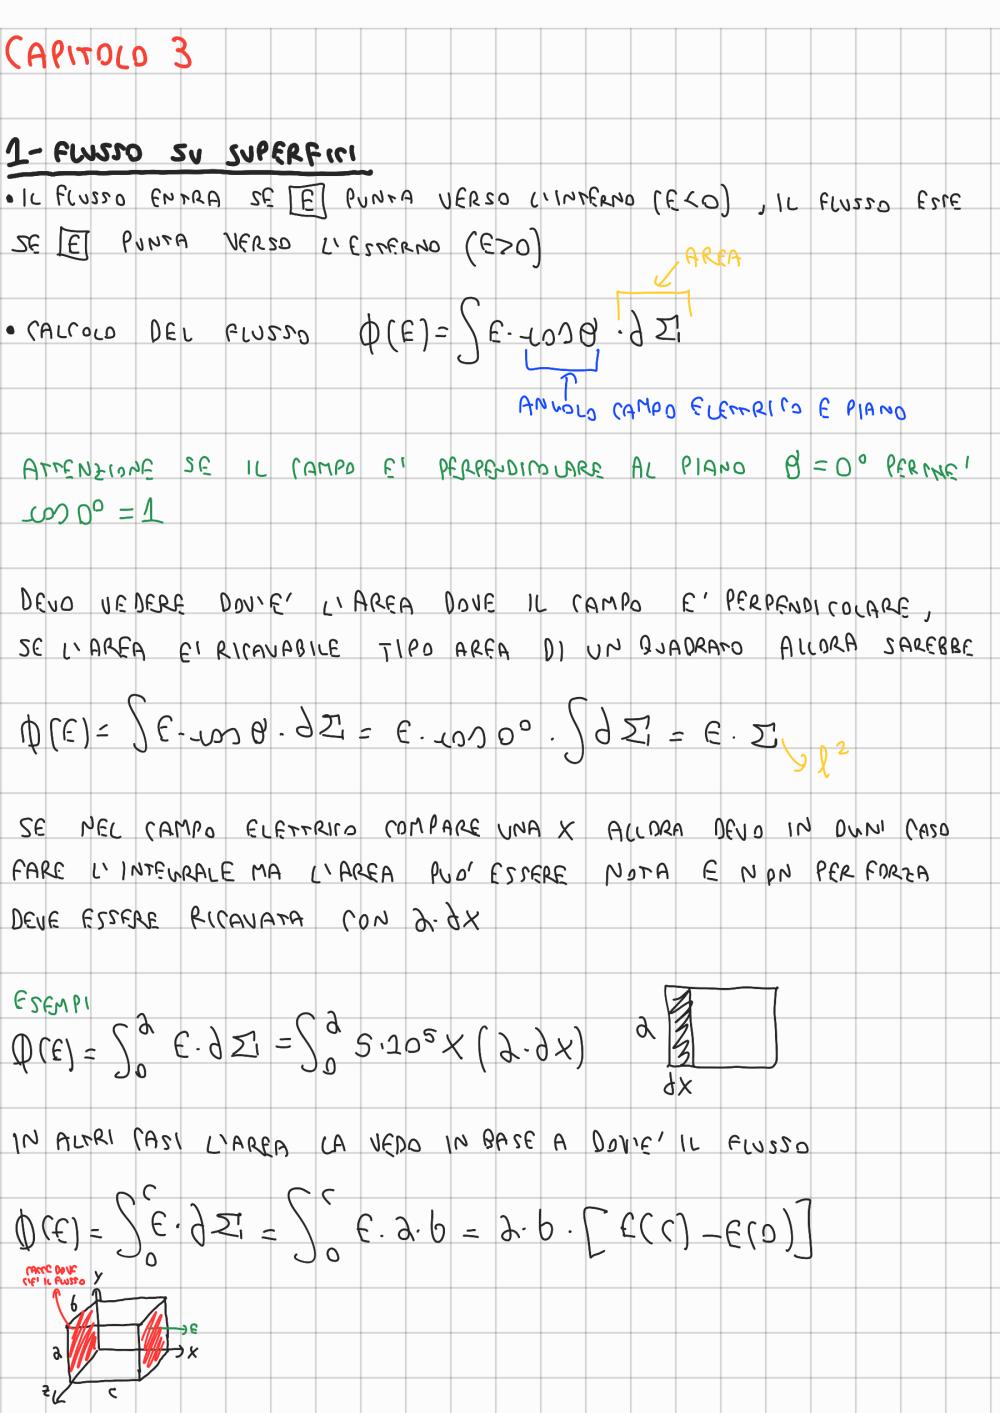 CAPITOLO 3
1- FLUSSO SU SUPERFICI
• IL FLUSSO ENTRA SE E PUNTA VERSO L'INTERNO (E<0), IL FLUSSO ESCE
SE E PUNTA VERSO L'ESTERNO (E>0)
AREA
• CALCOLO DEL FLUSSO ϕ(E) = ∫ E · cos θ · d Σ
ANGOLO CAMPO ELETTRICO E PIANO
ATTENZIONE SE IL CAMPO E' PERPENDICOLARE AL PIANO θ = 0° PERCHE'
cos 0° = 1
DEVO VEDERE DOV'E' L'AREA DOVE IL CAMPO E' PERPENDICOLARE,
SE L'AREA E' RICAVABILE TIPO AREA DI UN QUADRATO ALLORA SAREBBE
ϕ(E) = ∫ E · cos θ · d Σ = E · cos 0° · ∫ d Σ = E · Σ
l²
SE NEL CAMPO ELETTRICO COMPARE UNA X ALLORA DEVO IN OGNI CASO
FARE L'INTEGRALE MA L'AREA PUO' ESSERE NOTA E NON PER FORZA
DEVE ESSERE RICAVATA CON a · dx
ESEMPI
ϕ(E) = ∫₀ᵃ E · d Σ = ∫₀ᵃ 5·10⁵ X (a · dx)
a
dx
IN ALTRI CASI L'AREA LA VEDO IN BASE A DOV'E' IL FLUSSO
ϕ(E) = ∫₀ᶜ E · d Σ = ∫₀ᶜ E · a · b = a · b · [E(C) − E(0)]
FACCE DOVE
C'E' IL FLUSSO
y
b
E
a
x
z
c